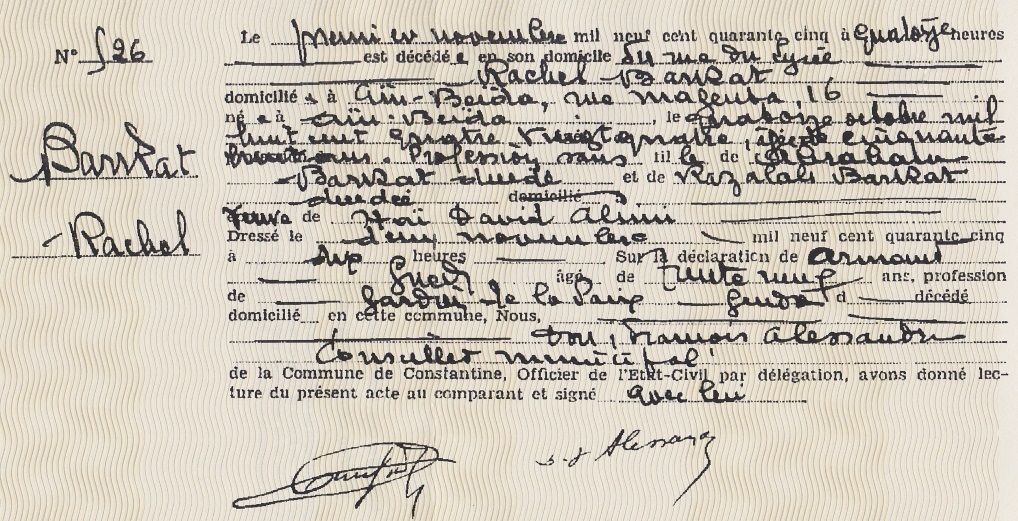 Le premier novembre mil neuf cent quarante cinq à quatorze heures
N° 526
est décédée en son domicile rue du Lycée
Rachel Barkat
domiciliée à Aïn-Beïda, rue Magenta, 16
née à Aïn-Beïda, le quatorze octobre mil
huit cent quatre vingt quatre, cinquante
Barkat
ans. Profession sans fille de Abraham
Barkat décédé et de Kazalah Barkat
décédée domicilié
Rachel
Veuve de David
Dressé le deux novembre mil neuf cent quarante cinq
à dix heures Sur la déclaration de Armand
Guedj âgé de trente neuf ans, profession
de Gardien de la Paix Gendre d décédé
domicilié en cette commune, Nous,
Don, François Alessandri
Conseiller municipal
de la Commune de Constantine, Officier de l'Etat-Civil par délégation, avons donné lec-
ture du présent acte au comparant et signé avec lui